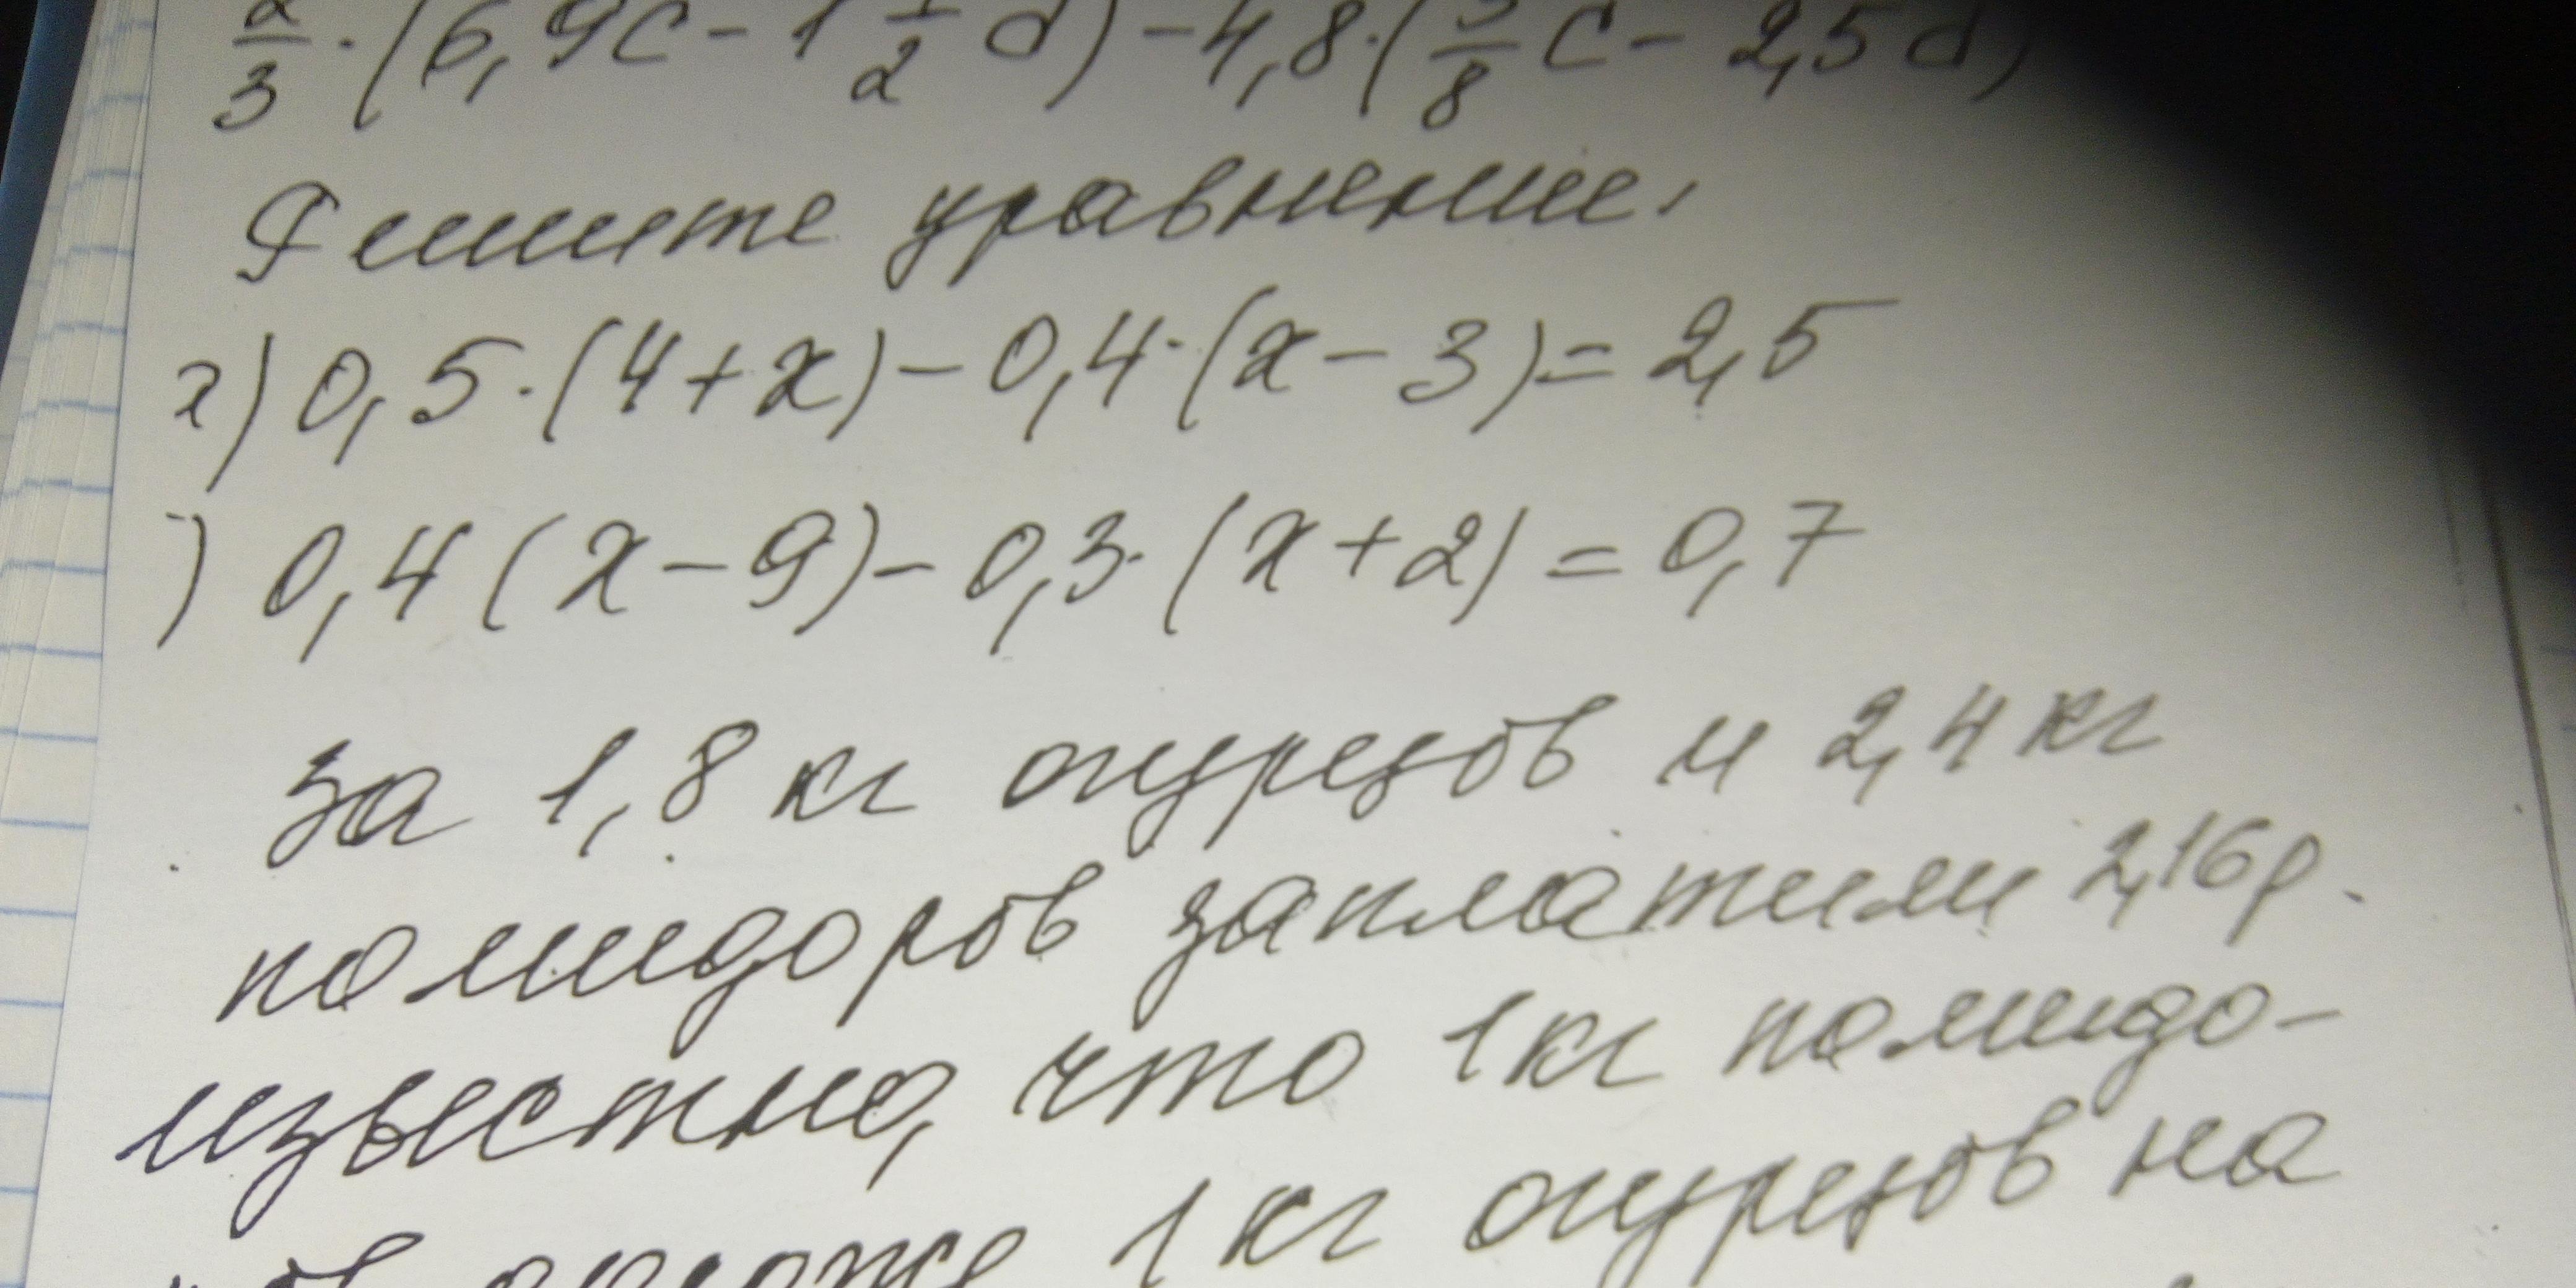 2/3 · (6,9c - 1 1/2 d) - 4,8 · (5/8 c - 2,5d)
Решите уравнение,
г) 0,5 · (4 + x) - 0,4 · (x - 3) = 2,5
) 0,4 (x - 9) - 0,3 · (x + 2) = 0,7
За 1,8 кг огурцов и 2,4 кг
помидоров заплатили 2,16 р.
известно, что 1 кг помидо-
ров дороже 1 кг огурцов на